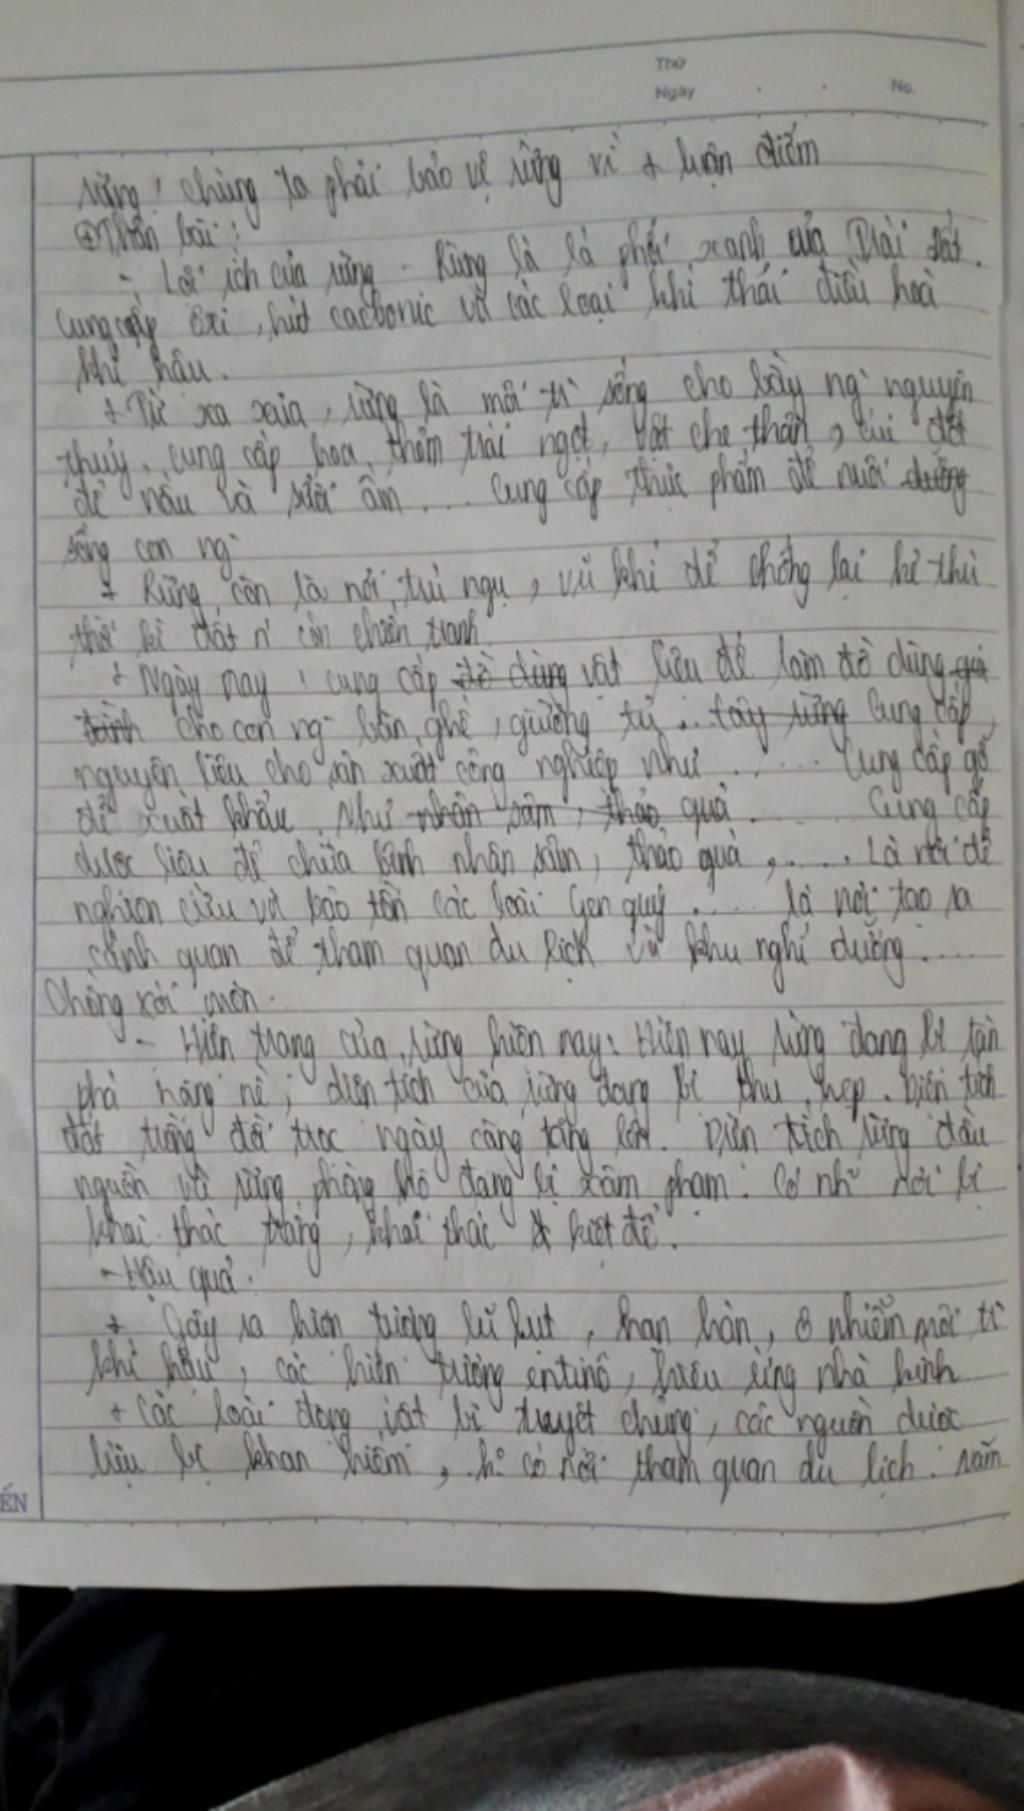 Thứ
Ngày . . No.
rừng, chúng ta phải bảo vệ rừng vì + luận điểm
⊕ Thân bài:
- Lợi ích của rừng - Rừng là lá phổi xanh của Trái đất.
Cung cấp ôxi, hút cacbonic và các loại khí thải điều hoà
khí hậu.
+ Từ xa xưa, rừng là môi tr` sống cho bầy ng` nguyên
thuỷ, cung cấp hoa thơm trái ngọt, vật che thân, củi đốt
để nấu và sưởi ấm ... Cung cấp thực phẩm để nuôi dưỡng
sống con ng`
+ Rừng còn là nơi trú ngụ, vũ khí để chống lại kẻ thù
thời kì đất n' còn chiến tranh
+ Ngày nay, cung cấp đồ dùng vật liệu để làm đồ dùng gia
đình cho con ng` bàn, ghế, giường tủ ... cây rừng Cung cấp
nguyên liệu cho sản xuất công nghiệp như ...... Cung cấp gỗ
để xuất khẩu. Như nhân sâm, thảo quả ...... Cung cấp
dược liệu để chữa bệnh nhân sâm, thảo quả, ..... Là nơi để
nghiên cứu và bảo tồn các loài Gen quý ...... là nơi tạo ra
cảnh quan để tham quan du lịch và khu nghỉ dưỡng .....
Chống xói mòn.
- Hiện trạng của rừng hiện nay: Hiện nay rừng đang bị tàn
phá nặng nề; diện tích của rừng đang bị thu hẹp. Diện tích
đất trống đồi trọc ngày càng tăng lên. Diện tích rừng đầu
nguồn và rừng phòng hộ đang bị xâm phạm. Có nh~ nơi bị
khai thác trắng, khai thác kiệt để.
- Hậu quả.
+ Gây ra hiện tượng lũ lụt, hạn hán, ô nhiễm môi tr`
khí hậu, các hiện tượng entinô, hiệu ứng nhà kính
+ Các loài động vật bị tuyệt chủng, các nguồn dược
liệu bị khan hiếm, k° có nơi tham quan du lịch.
ẾN